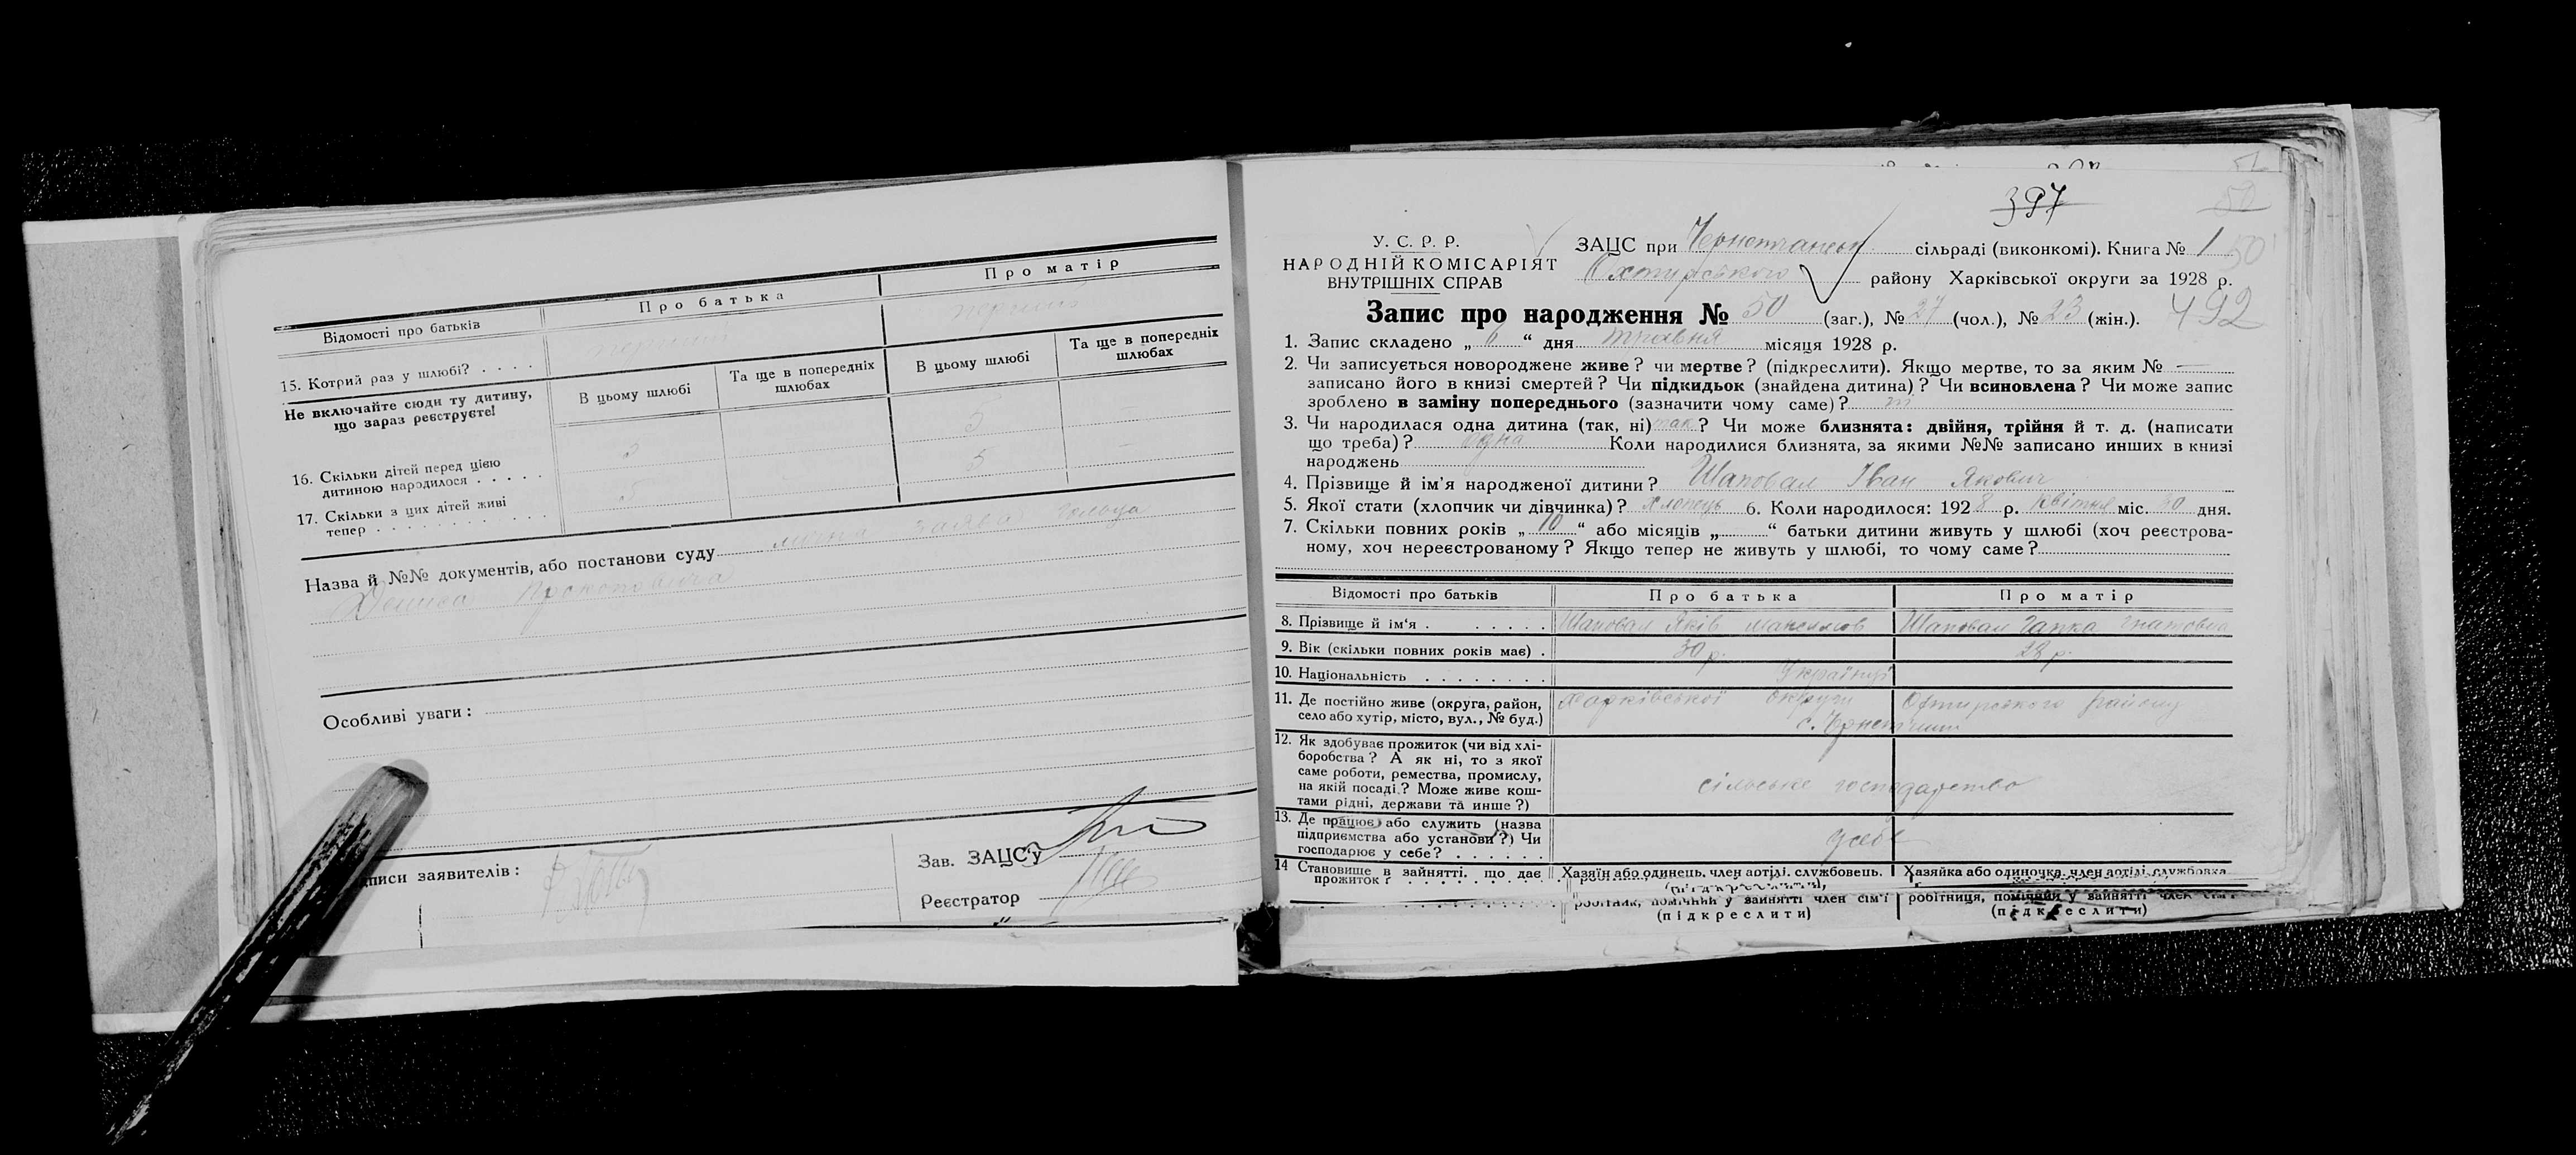 Відомості про батьків
Про батька
Про матір
15. Котрий раз у шлюбі? . . . .
перший
перший
Не включайте сюди ту дитину,
що зараз реєструєте!
В цьому шлюбі
Та ще в попередніх
шлюбах
В цьому шлюбі
Та ще в попередніх
шлюбах
16. Скільки дітей перед цією
дитиною народилося . . . . .
5
17. Скільки з цих дітей живі
тепер . . . . . . . . . . .
5
5
Назва й №№ документів, або постанови суду
заява
Дениса Прокоповича
Особливі уваги:
писи заявителів:
Зав. ЗАЦС‘у
Реєстратор
„
397
50
У. С. Р. Р.
НАРОДНІЙ КОМІСАРІЯТ
ВНУТРІШНІХ СПРАВ
ЗАЦС при сільраді (виконкомі). Книга № 1
50
Охтирського району Харківської округи за 1928 р.
Запис про народження № 50 (заг.), № 27 (чол.), № 23 (жін.).
492
1. Запис складено „ 6 “ дня травня місяця 1928 р.
2. Чи записується новороджене живе? чи мертве? (підкреслити). Якщо мертве, то за яким № —
записано його в книзі смертей? Чи підкидьок (знайдена дитина)? Чи всиновлена? Чи може запис
зроблено в заміну попереднього (зазначити чому саме)?
3. Чи народилася одна дитина (так, ні) так? Чи може близнята: двійня, трійня й т. д. (написати
що треба)? одна Коли народилися близнята, за якими №№ записано инших в книзі
народжень
4. Прізвище й ім’я народженої дитини? Шаповал Іван Якович
5. Якої стати (хлопчик чи дівчинка)? хлопець 6. Коли народилося: 1928 р. Квітня міс. 30 дня.
7. Скільки повних років „ 10 “ або місяців „ “ батьки дитини живуть у шлюбі (хоч реєстрова-
ному, хоч нереєстрованому? Якщо тепер не живуть у шлюбі, то чому саме?
Відомості про батьків
Про батька
Про матір
8. Прізвище й ім‘я . . . . . .
Шаповал Яків
Шаповал Гапка Гнатовна
9. Вік (скільки повних років має) .
30 р.
28 р.
10. Національність . . . . . . . .
Українці
11. Де постійно живе (округа, район,
село або хутір, місто, вул., № буд.)
Харківської округи
Охтирского району
12. Як здобуває прожиток (чи від хлі-
боробства? А як ні, то з якої
саме роботи, ремества, промислу,
на якій посаді? Може живе кош-
тами рідні, держави та инше?)
сільське господарство
13. Де працює або служить (назва
підприємства або установи?) Чи
господарює у себе? . . . . . .
у себе
14 Становище в зайнятті, що дає
прожиток?
Хазяїн або одинець, член артілі, службовець,
Хазяйка або одиночка, член артілі, службовка
робітник, помічний у зайнятті член сім'ї
(підкреслити)
робітниця, помічний у зайнятті член сім'ї
(підкреслити)